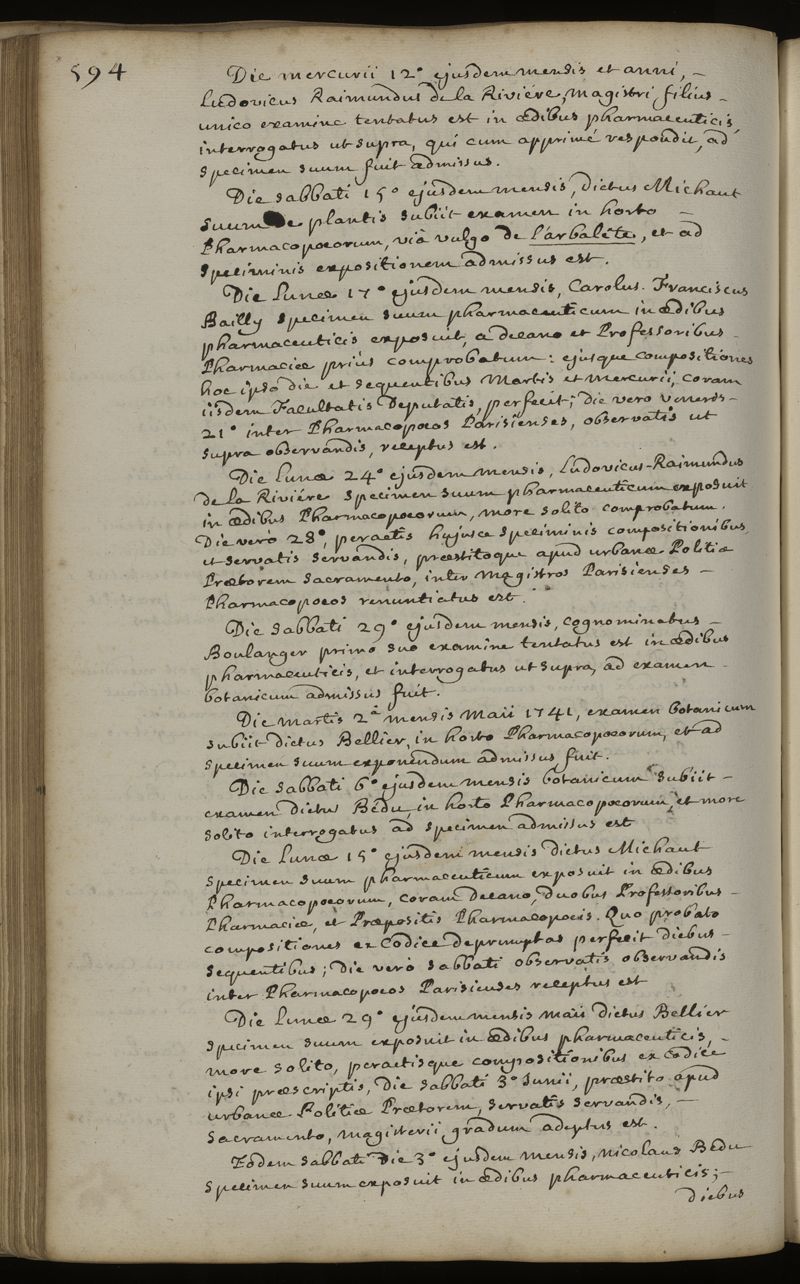 594
Die mercurii 12° ejusdem mensis et anni, –
Ludovicus Raimundus de la Riviére, magistri filius –
unico examine tentatus est in ædibus pharmaceuticis,
interrogatus ut supra, qui cum apprimé respondit, ad
specimen suum fuit admissus.
Die sabbati 15° ejusdem mensis, dictus Michaut
suum de plantis subiit examen in horto –
Pharmacopœorum, viâ vulgo de l'arbalête, et ad
speciminis expositionem admissus est.
Die Lunæ 17° ejusdem mensis, Carolus. Franciscus
Bailly specimen suum pharmaceuticum in ædibus
pharmaceuticis exposuit, a decano et Professoribus –
Pharmaciæ priùs comprobatum: ejusque compositiones
hoc ipso die et sequentibus Martis et mercurii, coram
iisdem Facultatis Deputatis, perfecit; die vero veneris –
21° inter Pharmacopœos Parisienses, observatis ut
supra observandis, receptus est.
Die Lunæ 24° ejusdem mensis, Ludovicus-Raimundus
de la Riviére specimen suum pharmaceuticum exposuit
in ædibus Pharmacopœorum, more solito comprobatum.
Die verò 28°, peractis hujusce speciminis compositionibus,
ut servatis servandis, præstitoque apud urbanæ Politiæ
Prætorem sacramento, inter magistros Parisienses –
Pharmacopœos renuntiatus est.
Die sabbati 29° ejusdem mensis, cognominatus –
Boulanger primo suo examine tentatus est in ædibus
pharmaceuticis, et interrogatus ut supra, ad examen –
botanicum admissus fuit.
Die martis 2â mensis Maii 1741, examen botanicum
subiit dictus Bellier, in horto Pharmacopœorum, et ad
specimen suum exponendum admissus fuit.
Die sabbati 6° ejusdem mensis botanicum subiit –
examen dictus Bédu, in horto Pharmacopœorum, et more
solito interrogatus ad specimen admissus est
Die Lunæ 15° ejusdem mensis dictus Michaut
specimen suum pharmaceuticum exposuit in ædibus
Pharmacopœorum, coram decano, duobus Professoribus –
Pharmaciæ, et Præpositis Pharmacopœis. Quo probato
compositiones ex Codice depromptas perfecit diebus –
sequentibus; die verò sabbati observatis observandis
inter Pharmacopœos Parisienses receptus est
Die Lunæ 29° ejusdem mensis maii dictus Bellier
specimen suum exposuit in ædibus pharmaceuticis, –
more solito, peractisque compositionibus ex codice
ipsi præscriptis, die sabbati 3° Junii, præstito apud
urbanæ Politiæ Prætorem, servatis servandis, –
sacramento, magisterii gradum adeptus est.
Eodem sabbati die 3° ejusdem mensis, nicolaus Bédu
specimen suum exposuit in ædibus pharmaceuticis; –
diebus